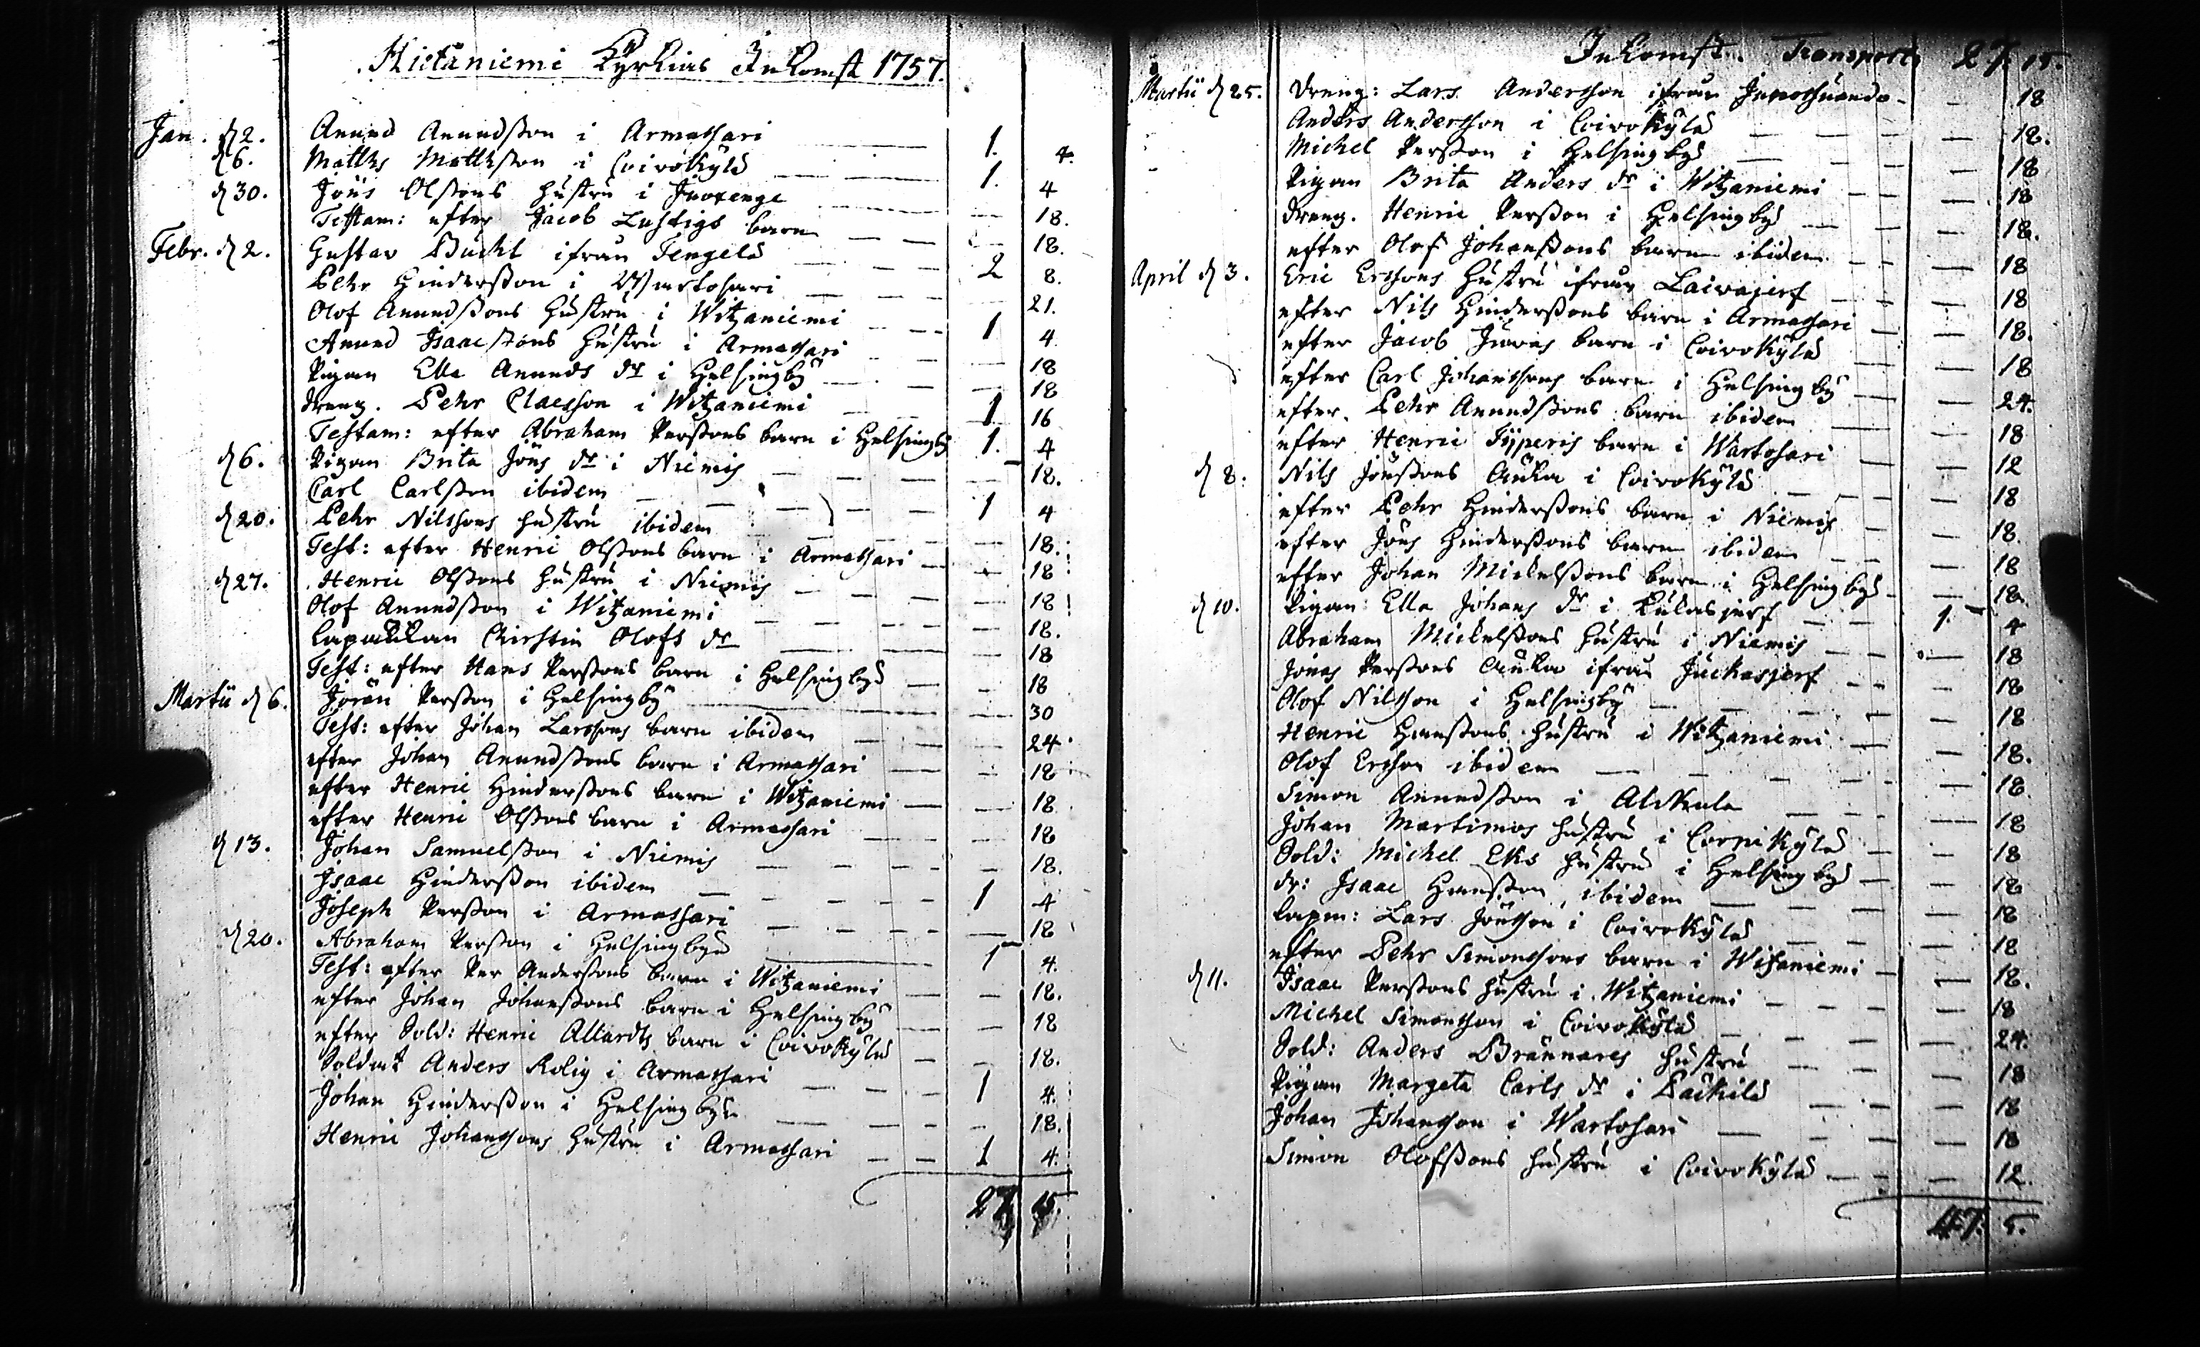 Hietaniemi Kyrkias Inkomst 1757.
Jan. d 2. Anund Anundsson i Armassari 1. 4.
d 6. Matths Matthsson i CoivoKylä 1. 4
d 30. Jöns Olssons hustru i Juoxenge — 18.
Testam: efter Jacob Lustigs barn — 18.
Febr. d 2. Gustav Bucht ifrån Tengelä 2 8.
Pehr Hindersson i Wartosari — 21.
Olof Anundssons hustru i Witzaniemi 1 4
Anund Isaacssons hustru i Armassari — 18
Pigan Ella Anunds dr i Helsingby — 18
dreng. Pehr Claesson i Witzaniemi 1 16
Testam: efter Abraham Perssons barn i Helsingby 1. 4
d 6. Pigan Brita Jöns dr i Niemis — 18.
Carl Carlsson ibidem 1 4
d 20. Pehr Nilssons hustru ibidem — 18.
Test: efter Henric Olssons barn i Armassari — 18
d 27. Henric Olssons hustru i Niemis — 18
Olof Anundsson i Witzaniemi — 18.
Lapqwinnan Chirstin Olofs dr — 18
Test: efter Hans Perssons barn i Helsingby — 18
Martii d 6. Jöran Persson i Helsingby — 30
Test: efter Johan Larssons barn ibidem — 24
efter Johan Anundssons barn i Armassari — 18
efter Henric Hinderssons barn i Witzaniemi — 18
efter Henric Olssons barn i Armassari — 18
d 13. Johan Samuelsson i Niemis — 18.
Isaac Hindersson ibidem 1 4
Joseph Persson i Armassari — 18
d 20. Abraham Persson i Helsingby 1 4.
Test: efter Per Anderssons barn i Witzaniemi — 18.
efter Johan Johanssons barn i Helsingby — 18
efter Sold: Henric Allardts barn i CoivoKylä — 18.
Soldat Anders Rolig i Armassari 1 4.
Johan Hindersson i Helsingby — 18.
Henric Johanssons hustru i Armassari 1 4.
27 15.
Inkomst. Transport 27. 15.
Martii d 25. dreng: Lars Andersson ifrån Junossuando — 18
Anders Andersson i CoivoKylä — 18.
Michel Persson i Helsingby — 18
Pigan Brita Anders dr i Witzaniemi — 18
dreng. Henric Persson i Helsingby — 18.
efter Olof Johanssons barn ibidem — 18
April d 3. Eric Erssons hustru ifrån Laivajerf — 18
efter Nils Hinderssons barn i Armassari — 18.
efter Jacob Juovas barn i CoivoKylä — 18
efter Carl Johanssons barn i Helsingby — 24.
efter Pehr Anundssons barn ibidem — 18
efter Henric Typeris barn i Wartosari — 12
d 8. Nils Jönssons Enka i CoivoKylä — 18
efter Pehr Hinderssons barn i Niemis — 18.
efter Jöns Hinderssons barn ibidem — 18
efter Johan Mickelssons barn i Helsingby — 18.
d 10. Pigan Ella Johans dr i Kukasjerf 1. 4
Abraham Mickelssons hustru i Niemis — 18
Jonas Perssons Enka ifrån Juckasjerf — 18
Olof Nilsson i Helsingby — 18
Henric Hanssons hustru i Witzaniemi — 18.
Olof Ersson ibidem — 18.
Simon Anundsson i AlkKula — 18
Johan Martimos hustru i CorpiKylä — 18
Sold: Michel Eks hustru i Helsingby — 18
dr: Isaac Hansson ibidem — 18
Lapm: Lars Jönsson i CoivoKylä — 18
efter Pehr Simonssons barn i Witzaniemi — 18.
d 11. Isaac Perssons hustru i Witzaniemi — 18
Michel Simonsson i CoivoKylä — 24.
Sold: Anders Brännares hustru — 18
Pigan Margeta Carls dr i Päckilä — 18
Johan Johansson i Wartosari — 18
Simon Olofssons hustru i CoivoKylä — 12.
47. 5.